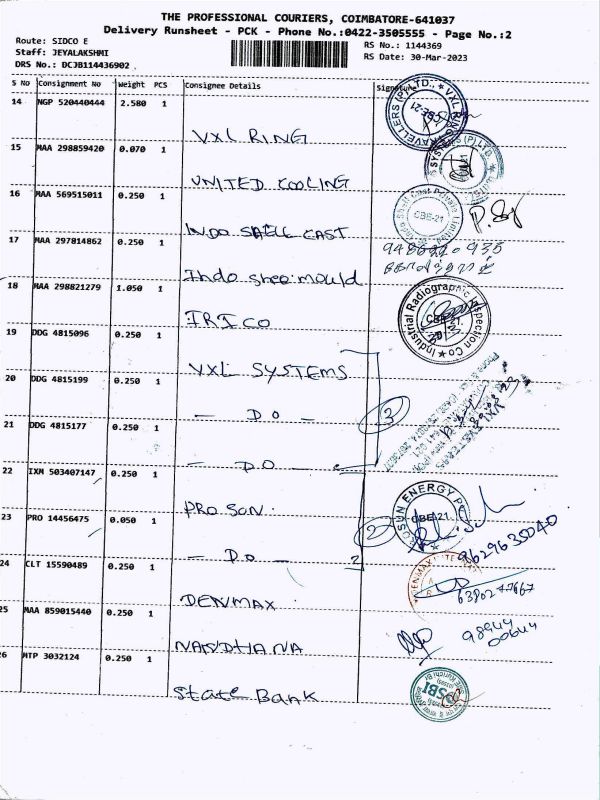 THE PROFESSIONAL COURIERS, COIMBATORE-641037
Delivery Runsheet - PCK - Phone No.:0422-3505555 - Page No.:2
Route: SIDCO E
RS No.: 1144369
Staff: JEYALAKSHMI
RS Date: 30-Mar-2023
DRS No.: DCJB114436902
S No Consignment No Weight PCS Consignee Details Signature
14 NGP 520440444 2.580 1
VXL RING
15 MAA 298859420 0.070 1
UNITED COOLING
16 MAA 569515011 0.250 1
INDO SHELL CAST
CBE-21
17 MAA 297814862 0.250 1
Indo shee mould
18 MAA 298821279 1.050 1
IRICO
Industrial Radiographic Inspection Co
19 DDG 4815096 0.250 1
VXL SYSTEMS
20 DDG 4815199 0.250 1
— DO —
3
21 DDG 4815177 0.250 1
— DO —
22 IXM 503407147 0.250 1
PRO SON
CBE-21
23 PRO 14456475 0.050 1
— DO —
2
2
9629635040
24 CLT 15590489 0.250 1
DENMAX
25 MAA 859015440 0.250 1
NANDHANA
26 MTP 3032124 0.250 1
State BANK
SBI